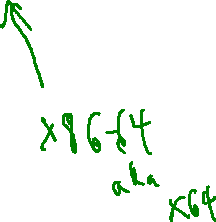 x86-64
aka
x64